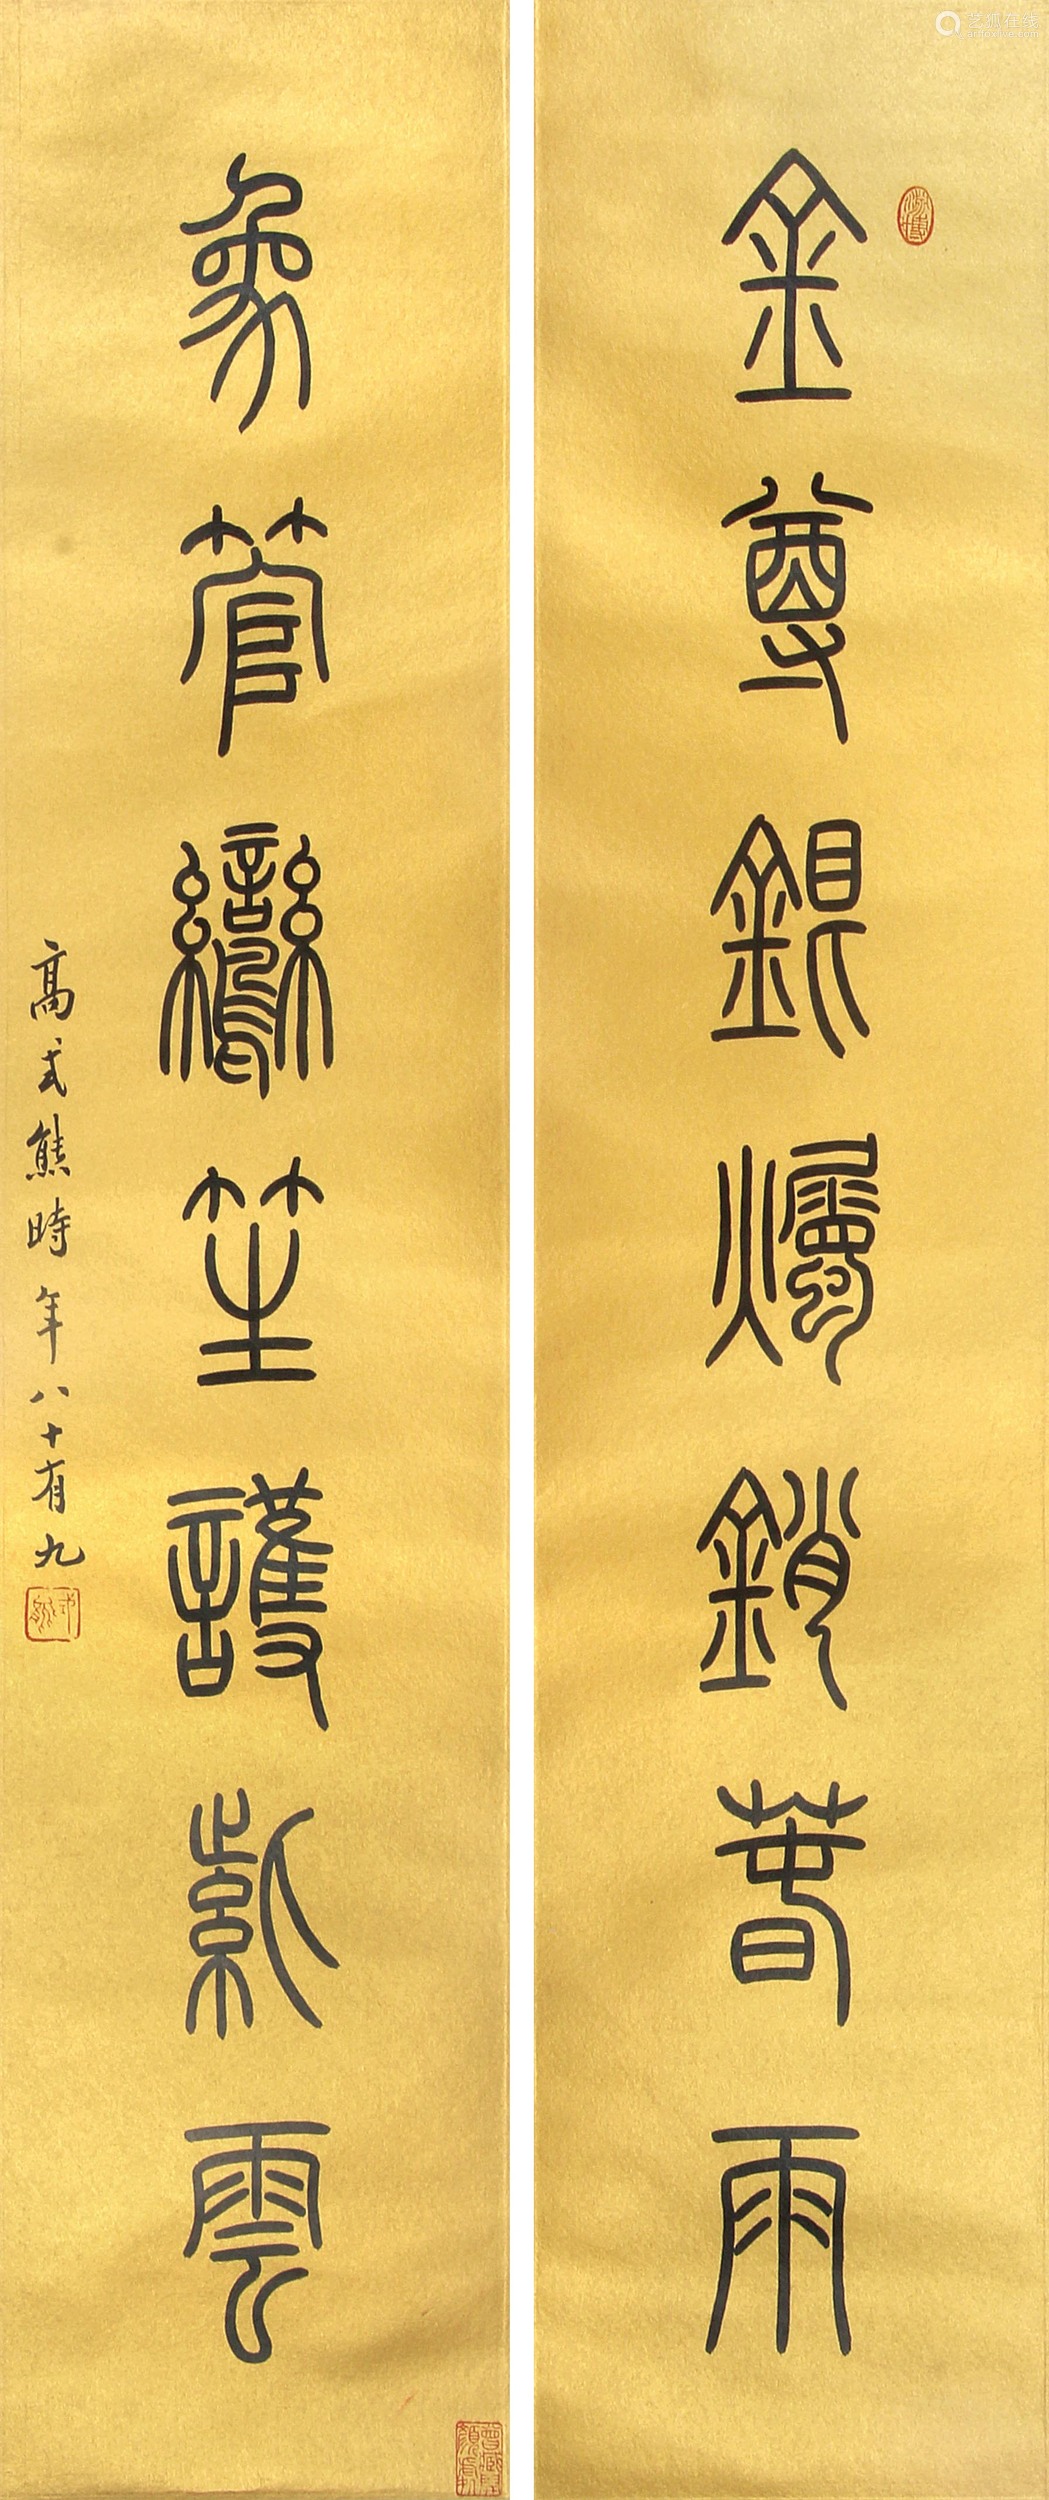 金尊銀燭銷春雨
象管鸞笙護紫雲
高式熊時年八十有九
式熊
艺狐在线
artfoxlive.com